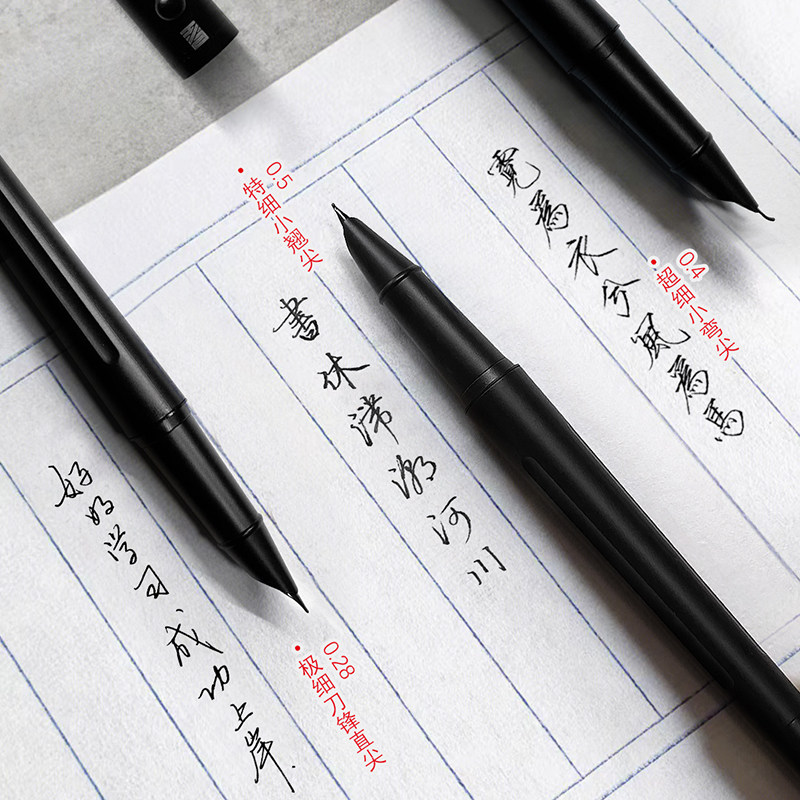 0.4
超细小弯尖
霓爲衣兮風爲馬
0.5
特细小翘尖
書休河川
0.28
极细刀锋直尖
好好学习成功上岸